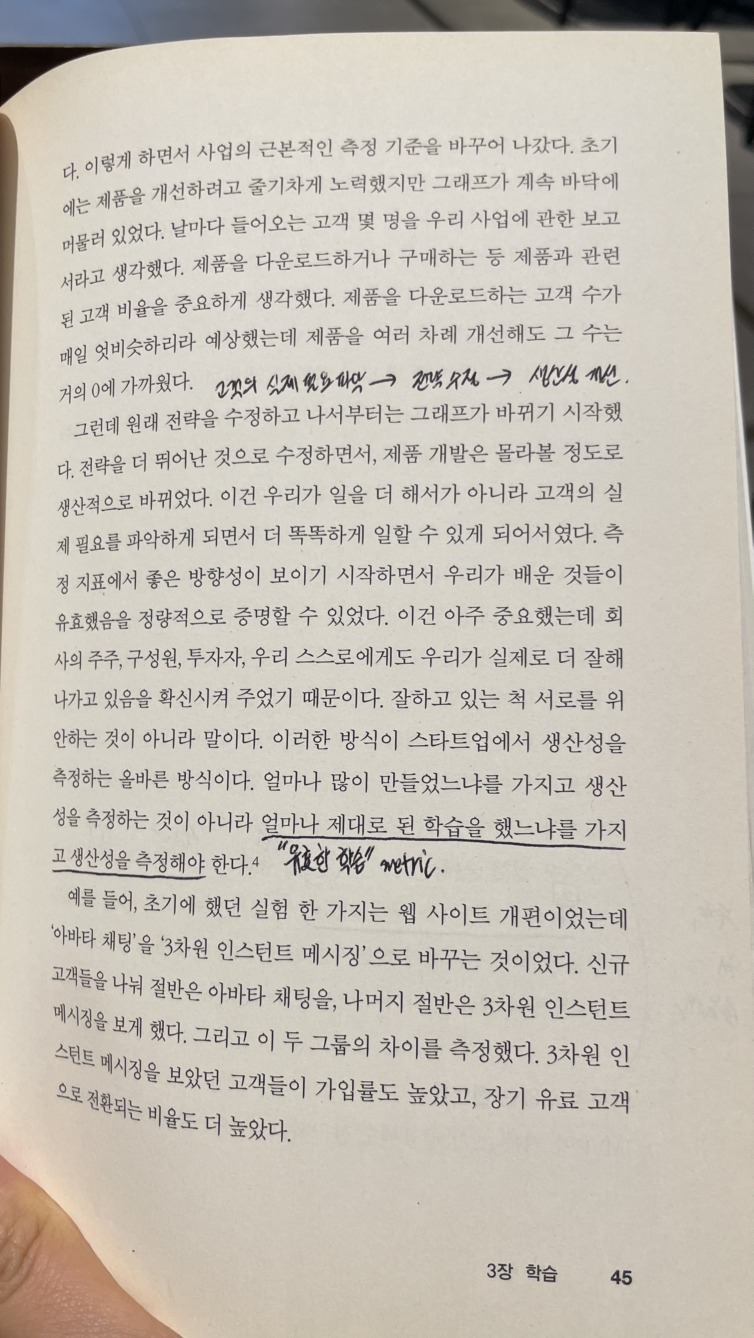 다. 이렇게 하면서 사업의 근본적인 측정 기준을 바꾸어 나갔다. 초기
에는 제품을 개선하려고 줄기차게 노력했지만 그래프가 계속 바닥에
머물러 있었다. 날마다 들어오는 고객 몇 명을 우리 사업에 관한 보고
서라고 생각했다. 제품을 다운로드하거나 구매하는 등 제품과 관련
된 고객 비율을 중요하게 생각했다. 제품을 다운로드하는 고객 수가
매일 엇비슷하리라 예상했는데 제품을 여러 차례 개선해도 그 수는
거의 0에 가까웠다. 고객의 실제 필요 파악 → 전략 수정 → 생산성 개선.
그런데 원래 전략을 수정하고 나서부터는 그래프가 바뀌기 시작했
다. 전략을 더 뛰어난 것으로 수정하면서, 제품 개발은 몰라볼 정도로
생산적으로 바뀌었다. 이건 우리가 일을 더 해서가 아니라 고객의 실
제 필요를 파악하게 되면서 더 똑똑하게 일할 수 있게 되어서였다. 측
정 지표에서 좋은 방향성이 보이기 시작하면서 우리가 배운 것들이
유효했음을 정량적으로 증명할 수 있었다. 이건 아주 중요했는데 회
사의 주주, 구성원, 투자자, 우리 스스로에게도 우리가 실제로 더 잘해
나가고 있음을 확신시켜 주었기 때문이다. 잘하고 있는 척 서로를 위
안하는 것이 아니라 말이다. 이러한 방식이 스타트업에서 생산성을
측정하는 올바른 방식이다. 얼마나 많이 만들었느냐를 가지고 생산
성을 측정하는 것이 아니라 얼마나 제대로 된 학습을 했느냐를 가지
고 생산성을 측정해야 한다.4 "유효한 학습" metric.
예를 들어, 초기에 했던 실험 한 가지는 웹 사이트 개편이었는데
'아바타 채팅'을 '3차원 인스턴트 메시징'으로 바꾸는 것이었다. 신규
고객들을 나눠 절반은 아바타 채팅을, 나머지 절반은 3차원 인스턴트
메시징을 보게 했다. 그리고 이 두 그룹의 차이를 측정했다. 3차원 인
스턴트 메시징을 보았던 고객들이 가입률도 높았고, 장기 유료 고객
으로 전환되는 비율도 더 높았다.
3장 학습 45